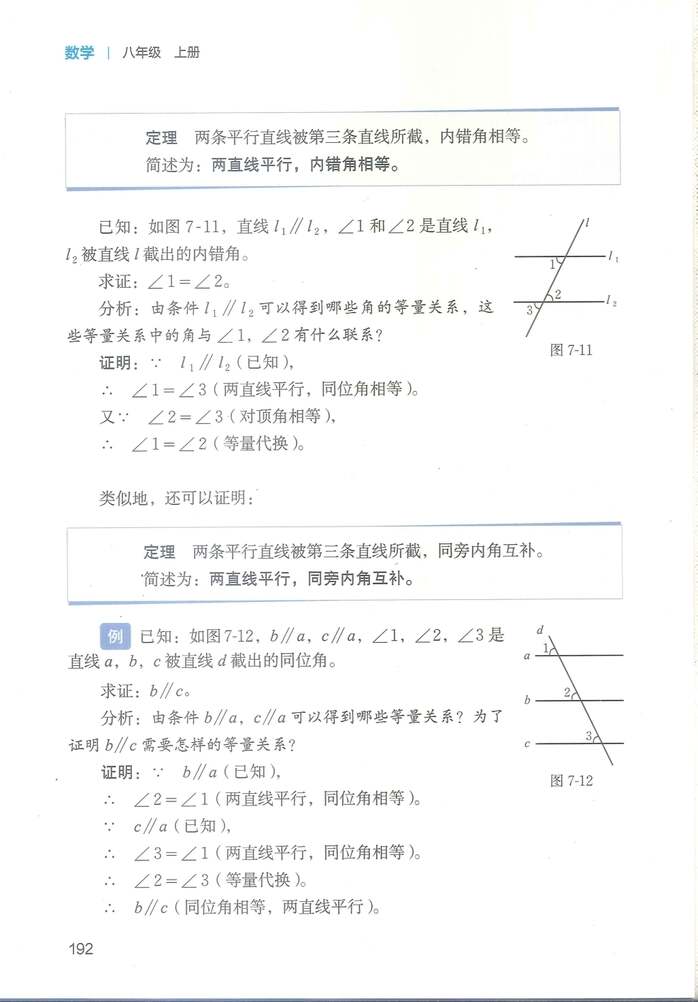 数学 | 八年级 上册
定理 两条平行直线被第三条直线所截，内错角相等。
简述为：两直线平行，内错角相等。
已知：如图 7-11，直线 l₁∥l₂，∠1 和∠2 是直线 l₁，
l₂ 被直线 l 截出的内错角。
求证：∠1＝∠2。
分析：由条件 l₁∥l₂ 可以得到哪些角的等量关系，这
些等量关系中的角与∠1，∠2 有什么联系？
证明：∵ l₁∥l₂（已知），
∴ ∠1＝∠3（两直线平行，同位角相等）。
又∵ ∠2＝∠3（对顶角相等），
∴ ∠1＝∠2（等量代换）。
l
1
l₁
2
3
l₂
图 7-11
类似地，还可以证明：
定理 两条平行直线被第三条直线所截，同旁内角互补。
简述为：两直线平行，同旁内角互补。
例 已知：如图7-12，b∥a，c∥a，∠1，∠2，∠3 是
直线 a，b，c 被直线 d 截出的同位角。
求证：b∥c。
分析：由条件 b∥a，c∥a 可以得到哪些等量关系？为了
证明 b∥c 需要怎样的等量关系？
证明：∵ b∥a（已知），
∴ ∠2＝∠1（两直线平行，同位角相等）。
∵ c∥a（已知），
∴ ∠3＝∠1（两直线平行，同位角相等）。
∴ ∠2＝∠3（等量代换）。
∴ b∥c（同位角相等，两直线平行）。
d
a
1
b
2
c
3
图 7-12
192